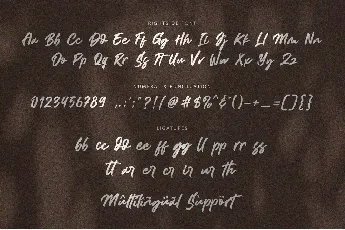 Aa Bb Cc Dd Ee Ff Gg Hh Ii Jj Kk Ll Mm Nn
Oo Pp Qq Rr Ss Tt Uu Vv Ww Xx Yy Zz
NUMERAL & PUNCTUATION
0123456789 .,:;'"?!(/@#$%^&*()-+_=[]{}
LIGATURES
bb cc dd ee ff gg ll pp rr ss
tt ar er cr ir ur th
Multilingual Support